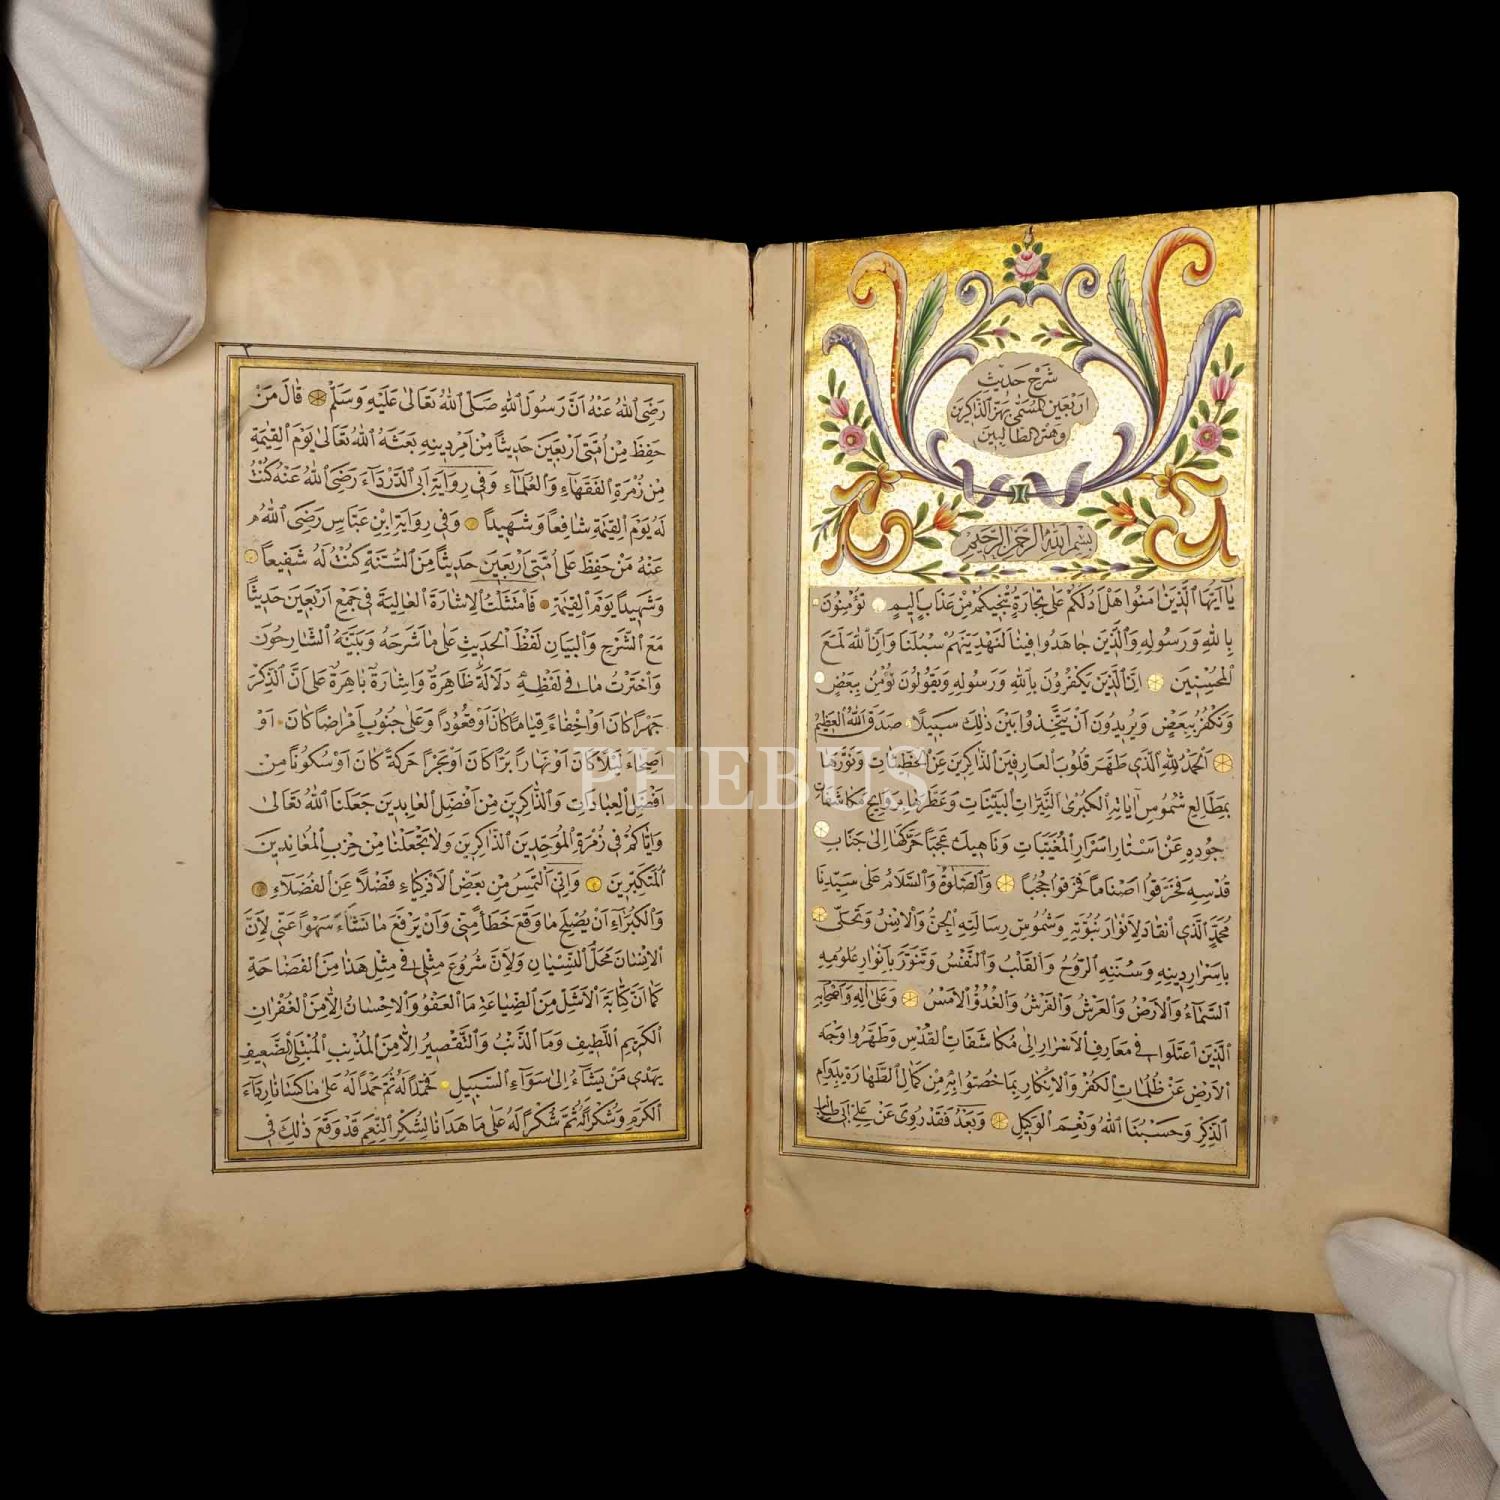 شَرْحُ حَدِيثِ
اَرْبَعِينَ الْمُسَمّٰى بِهَزِّ الذَّاكِرِينَ
وَهَزِّ الطَّالِبِينَ
بِسْمِ اللّٰهِ الرَّحْمٰنِ الرَّحِيمِ
يَا اَيُّهَا الَّذِينَ اٰمَنُوا هَلْ اَدُلُّكُمْ عَلٰى تِجَارَةٍ تُنْجِيكُمْ مِنْ عَذَابٍ اَلِيمٍ تُؤْمِنُونَ
بِاللّٰهِ وَرَسُولِهِ وَالَّذِينَ جَاهَدُوا فِينَا لَنَهْدِيَنَّهُمْ سُبُلَنَا وَاِنَّ اللّٰهَ لَمَعَ
الْمُحْسِنِينَ اِنَّ الَّذِينَ يَكْفُرُونَ بِاللّٰهِ وَرَسُولِهِ وَيَقُولُونَ نُؤْمِنُ بِبَعْضٍ
وَنَكْفُرُ بِبَعْضٍ وَيُرِيدُونَ اَنْ يَتَّخِذُوا بَيْنَ ذٰلِكَ سَبِيلًا صَدَقَ اللّٰهُ الْعَظِيمُ
اَلْحَمْدُ لِلّٰهِ الَّذِي طَهَّرَ قُلُوبَ الْعَارِفِينَ الذَّاكِرِينَ عَنِ الْخَطِيئَاتِ وَنَوَّرَهَا
بِمَطَالِعِ شُمُوسِ اٰيَاتِهِ الْكُبْرَى النَّيِّرَاتِ الْبَيِّنَاتِ وَعَطَّرَهَا بِرَوَايِحِ مُكَاشَفَاتِ
جُودِهِ عَنْ اَسْتَارِ اَسْرَارِ الْمُغَيَّبَاتِ وَنَاهِيكَ عَجَبًا حَرَّكَهَا اِلٰى جَنَابِ
قُدْسِهِ فَخَرَّقُوا اَصْنَامًا فَخَرَقُوا حُجُبًا وَالصَّلٰوةُ وَالسَّلَامُ عَلٰى سَيِّدِنَا
مُحَمَّدٍ الَّذِي انْقَادَ لِاَنْوَارِ نُبُوَّتِهِ وَشُمُوسِ رِسَالَتِهِ الْجِنُّ وَالْاِنْسُ وَتَحَلّٰى
بِاَسْرَارِ دِينِهِ وَسُنَنِهِ الرُّوحُ وَالْقَلْبُ وَالنَّفْسُ وَتَنَوَّرَ بِاَنْوَارِ عُلُومِهِ
السَّمَاءُ وَالْاَرْضُ وَالْعَرْشُ وَالْفَرْشُ وَالْغُدُوُّ الْاَمْسُ وَعَلٰى اٰلِهِ وَاَصْحَابِهِ
الَّذِينَ اعْتَلَوا فِي مَعَارِفِ الْاَسْرَارِ اِلٰى مُكَاشَفَاتِ الْقُدْسِ وَطَهَّرُوا وَجْهَ
الْاَرْضِ عَنْ ظُلُمَاتِ الْكُفْرِ وَالْاِنْكَارِ بِمَا خُصُّوا بِهِ مِنْ كَمَالِ الطَّهَارَةِ بِدَوَامِ
الذِّكْرِ وَحَسْبُنَا اللّٰهُ وَنِعْمَ الْوَكِيلُ وَبَعْدُ فَقَدْ رُوِيَ عَنْ عَلِيِّ ابْنِ اَبِي طَالِبٍ
رَضِيَ اللّٰهُ عَنْهُ اَنَّ رَسُولَ اللّٰهِ صَلَّى اللّٰهُ تَعَالٰى عَلَيْهِ وَسَلَّمْ قَالَ مَنْ
حَفِظَ مِنْ اُمَّتِي اَرْبَعِينَ حَدِيثًا مِنْ اَمْرِ دِينِهِ بَعَثَهُ اللّٰهُ تَعَالٰى يَوْمَ الْقِيٰمَةِ
مِنْ زُمْرَةِ الْفُقَهَاءِ وَالْعُلَمَاءِ وَفِي رِوَايَةِ اَبِي الدَّرْدَاءِ رَضِيَ اللّٰهُ عَنْهُ كُنْتُ
لَهُ يَوْمَ الْقِيٰمَةِ شَافِعًا وَشَهِيدًا وَفِي رِوَايَةِ ابْنِ عَبَّاسٍ رَضِيَ اللّٰهُ
عَنْهُ مَنْ حَفِظَ عَلٰى اُمَّتِي اَرْبَعِينَ حَدِيثًا مِنَ السُّنَّةِ كُنْتُ لَهُ شَفِيعًا
وَشَهِيدًا يَوْمَ الْقِيٰمَةِ فَامْتَثَلْتُ الْاِشَارَةَ الْعَالِيَةَ فِي جَمْعِ اَرْبَعِينَ حَدِيثًا
مَعَ الشَّرْحِ وَالْبَيَانِ لَفْظَ الْحَدِيثِ عَلٰى مَا شَرَحَهُ وَبَيَّنَهُ الشَّارِحُونَ
وَاخْتَرْتُ مَا فِي لَفْظِهِ دَلَالَةٌ ظَاهِرَةٌ وَاِشَارَةٌ بَاهِرَةٌ عَلٰى اَنَّ الذِّكْرَ
جَهْرًا كَانَ اَوْ اِخْفَاءً قِيَامًا كَانَ اَوْ قُعُودًا وَعَلٰى جُنُوبٍ اِمْرَاضًا كَانَ اَوْ
اَصِحَّاءَ لَيْلًا كَانَ اَوْ نَهَارًا بَرًّا كَانَ اَوْ بَحْرًا حَرَكَةً كَانَ اَوْ سُكُونًا مِنْ
اَفْضَلِ الْعِبَادَاتِ وَالذَّاكِرِينَ مِنْ اَفْضَلِ الْعَابِدِينَ جَعَلَنَا اللّٰهُ تَعَالٰى
وَاِيَّاكُمْ فِي زُمْرَةِ الْمُوَحِّدِينَ الذَّاكِرِينَ وَلَا يَجْعَلْنَا مِنْ حِزْبِ الْمُعَانِدِينَ
الْمُتَكَبِّرِينَ وَاِنِّي اَلْتَمِسُ مِنْ بَعْضِ الْاَذْكِيَاءِ فَضْلًا عَنِ الْفُضَلَاءِ
وَالْكُبَرَاءِ اَنْ يُصْلِحَ مَا وَقَعَ خَطَأً مِنِّي وَاَنْ يَرْفَعَ مَا نَشَاءَ سَهْوًا عَنِّي لِاَنَّ
الْاِنْسَانَ مَحَلُّ النِّسْيَانِ وَلِاَنَّ شُرُوعَ مِثْلِي فِي مِثْلِ هٰذَا مِنَ الْفَصَاحَةِ
كَمَا اَنَّ كِتَابَةَ الْاَشَلِّ مِنَ الصِّنَاعَةِ مَا الْعَفْوُ وَالْاِحْسَانُ اِلَّا مِنَ الْغُفْرَانِ
الْكَرِيمِ اللَّطِيفِ وَمَا الذَّنْبُ وَالتَّقْصِيرُ اِلَّا مِنَ الْمُذْنِبِ الْمُبْتَلَى الضَّعِيفِ
يَهْدِي مَنْ يَشَاءُ اِلٰى سَوَاءِ السَّبِيلِ فَحَمْدًا لَهُ ثُمَّ حَمْدًا لَهُ عَلٰى مَا كَسَانَا رِدَاءَ
الْكَرَمِ وَشُكْرًا لَهُ ثُمَّ شُكْرًا لَهُ عَلٰى مَا هَدَانَا لِشُكْرِ النِّعَمِ قَدْ وَقَعَ ذٰلِكَ فِي
PHEBUS